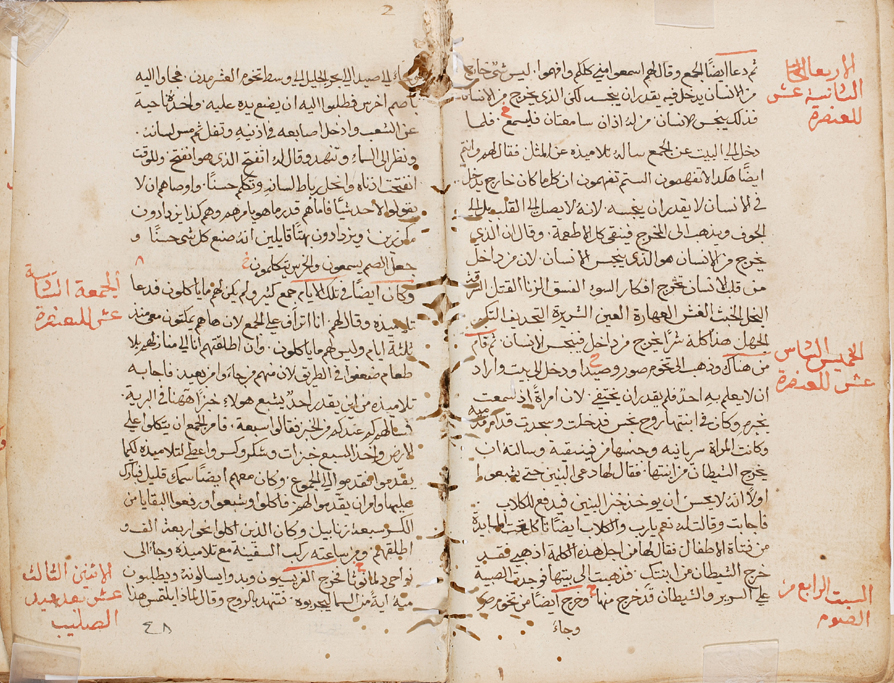 الاربعا
الثانية عشر
للعنصرة
ثم دعا ايضًا الجمع وقال لهم اسمعوا مني كلكم وافهموا. ليس شي خارج
من الانسان يدخل فيه يقدر ان ينجسه لكن الذي يخرج من الانسان
فذلك ينجس الانسان من له اذان سامعتان فليسمع. فلما
دخل الى البيت عن الجمع ساله تلاميذه عن المثل فقال لهم وانتم
ايضًا هكذا لا تفهمون الستم تفهمون ان كلما كان خارج يدخل
في الانسان لا يقدر ان ينجسه. لانه لا يصل الى القلب بل الى
الجوف ويذهب الى المخرج فينقي كل الاطعمة. وقال ان الذي
يخرج من الانسان هو الذي ينجس الانسان. لان من داخل
من قلب الانسان تخرج افكار السوء الفسق الزنا القتل السرقة
البخل الخبث الغش العهارة العين الشريرة التجديف التكبر
الجهل هذا كله شرًا يخرج من داخل فينجس الانسان. ثم قام
من هناك وذهب الى تخوم صور وصيدا ودخل الى بيت واراد
الخميس السادس
عشر للعنصرة
ان لا يعلم به احد فلم يقدر ان يختفي. لان امراة اذ سمعت
بخبره وكان في ابنتها روح نجس فدخلت وسجدت قدام قدميه
وكانت المراة سريانيه وجنسها من فينيقية وسالته ان
يخرج الشيطان من ابنتها. فقال لها دعي البنين حتى يشبعوا
اولًا انه لا يحسن ان يوخذ خبز البنين فيدفع للكلاب
فاجابت وقالت له نعم يارب والكلاب ايضًا تاكل تحت المايدة
من فتاة الاطفال فقال لها من اجل هذه الكلمة اذهبي فقد
خرج الشيطان من ابنتك. فذهبت الى بيتها فوجدت الصبية
على السرير والشيطان قد خرج منها وخرج ايضًا من تخوم صور
السبت الرابع من
الصوم
وجاء
2
وجاء الى صيدا الى بحر الجليل الى وسط تخوم العشر مدن. فجاوا اليه
باصم اخرس فطلبوا اليه ان يضع يده عليه. واخذه ناحية
عن الشعب وادخل اصابعه في اذنيه وتفل ثم مس لسانه.
ونظر الى السماء وتنهد وقال له انفتح الذي هو انفتح وللوقت
انفتحت اذناه وانحل رباط لسانه وتكلم حسنًا. واوصاهم ان لا
يقولوا لاحد شيًا فاما هم قدر ما هو يامرهم وهم كذا يزدادون
مكرزين. ويزدادون بهتًا قايلين انه صنع كل شي حسنًا و
جعل الصم يسمعون والخرس يتكلمون
الجمعة السادسة
عشر للعنصرة
وكان ايضًا في تلك الايام جمع كثير ولم يكن لهم ما ياكلون فدعا
تلاميذه وقال لهم. انا اتراف على الجمع لان هاهم يمكثون معي منذ
ثلثة ايام وليس لهم ما ياكلون. وان اطلقتهم الى منازلهم بلا
طعام ضعفوا في الطريق لان منهم من جاء من بعيد. فاجابه
تلاميذه من اين يقدر احد يشبع هولاء خبزًا ههنا في البرية.
فسالهم كم عندكم من الخبز فقالوا سبعة. فامر الجمع ان يتكلوا على
الارض واخذ السبع خبزات وشكر وكسر واعطى لتلاميذه لكيما
يقدموا فقدموا الى الجموع. وكان معهم ايضًا سمك قليل فبارك
عليها وامر ان يقدموا لهم. فاكلوا وشبعوا ورفعوا البقايا من
الكسر سبعة زنابيل وكان الذين اكلوا نحو اربعة الف و
اطلقهم. ومن ساعته ركب السفينة مع تلاميذه وجا الى
نواحي دلمانوثا فخرج الفريسيون وبدوا يسالونه ويطلبون
منه اية من السما ليجربوه. فتنهد بالروح وقال لماذا يلتمس هذا
الاثنين الثالث
عشر بعد عيد
الصليب
٤٨